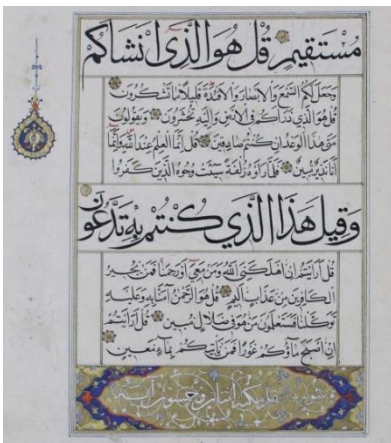 مُسْتَقِيمٍ قُلْ هُوَ الَّذِي أَنْشَاكُمْ
وَجَعَلَ لَكُمُ السَّمْعَ وَالْأَبْصَارَ وَالْأَفْئِدَةَ قَلِيلًا مَا تَشْكُرُونَ
قُلْ هُوَ الَّذِي ذَرَأَكُمْ فِي الْأَرْضِ وَإِلَيْهِ تُحْشَرُونَ وَيَقُولُونَ
مَتَى هَذَا الْوَعْدُ إِنْ كُنْتُمْ صَادِقِينَ قُلْ إِنَّمَا الْعِلْمُ عِنْدَ اللَّهِ وَإِنَّمَا
أَنَا نَذِيرٌ مُبِينٌ فَلَمَّا رَأَوْهُ زُلْفَةً سِيئَتْ وُجُوهُ الَّذِينَ كَفَرُوا
وَقِيلَ هَذَا الَّذِي كُنْتُمْ بِهِ تَدَّعُونَ
قُلْ أَرَأَيْتُمْ إِنْ أَهْلَكَنِيَ اللَّهُ وَمَنْ مَعِيَ أَوْ رَحِمَنَا فَمَنْ يُجِيرُ
الْكَافِرِينَ مِنْ عَذَابٍ أَلِيمٍ قُلْ هُوَ الرَّحْمَنُ آمَنَّا بِهِ وَعَلَيْهِ
تَوَكَّلْنَا فَسَتَعْلَمُونَ مَنْ هُوَ فِي ضَلَالٍ مُبِينٍ قُلْ أَرَأَيْتُمْ
إِنْ أَصْبَحَ مَاؤُكُمْ غَوْرًا فَمَنْ يَأْتِيكُمْ بِمَاءٍ مَعِينٍ